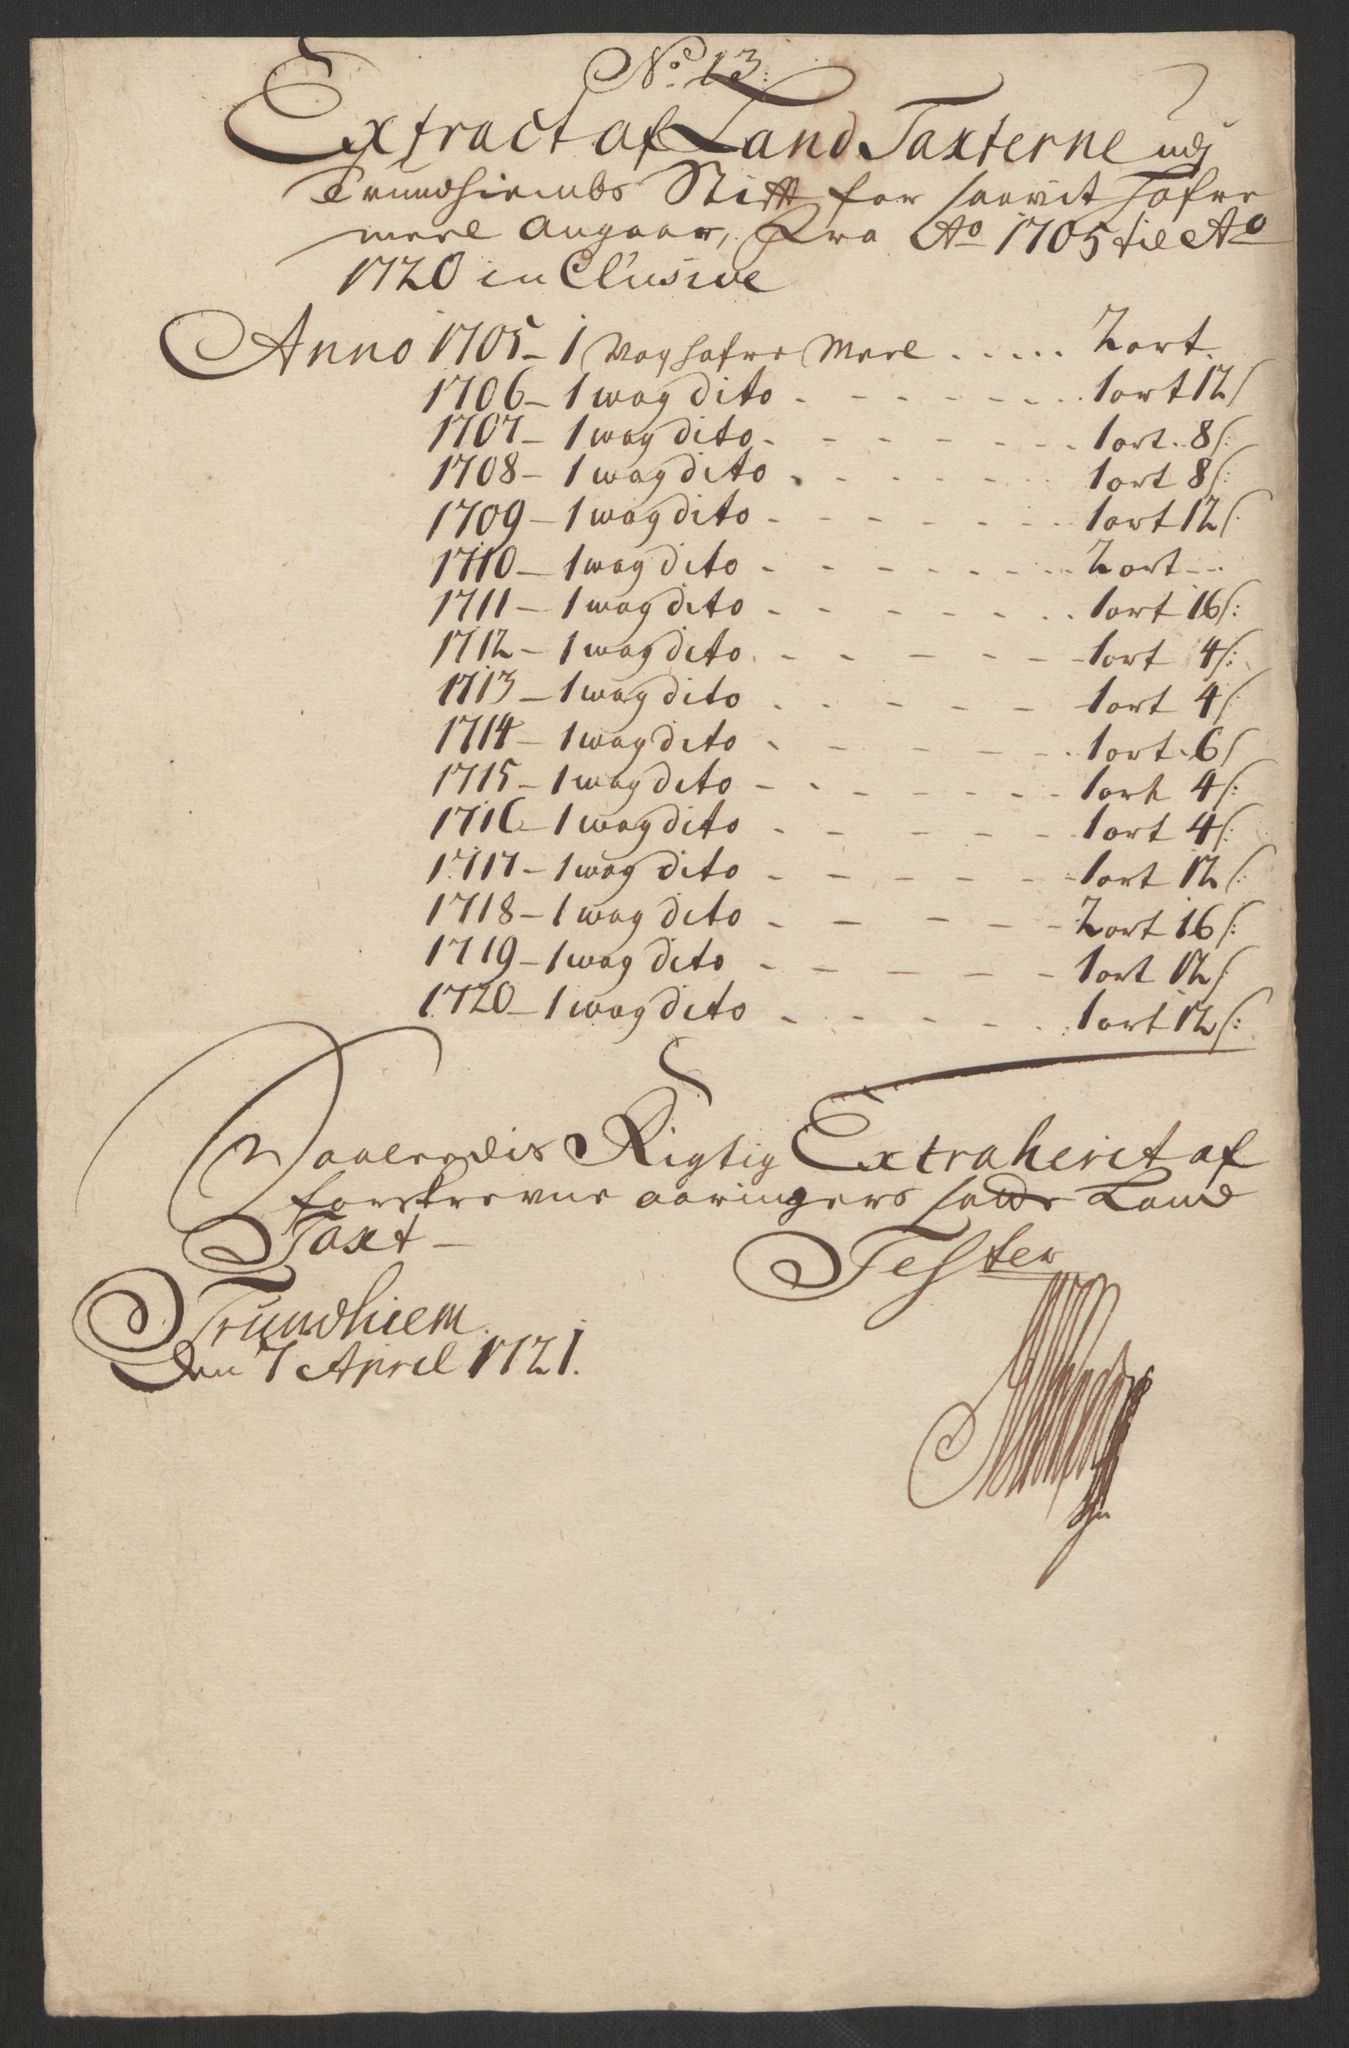 No 13.
Extract af Land Taxterne udj
Trundhiembs Stift for saavit Hafre
meel Angaar, Fra Ao 1705 til Ao
1720 in Clusive
Anno 1705 - 1 Vog hafre Meel ..... 2 ort.
1706 - 1 wog dito - - - - - - 1 ort 12 s
1707 - 1 wog dito - - - - - - 1 ort. 8 s:
1708 - 1 wog dito - - - - - - 1 ort 8 s:
1709 - 1 wog dito - - - - - - 1 ort 12 s:
1710 - 1 wog dito - - - - - - 2 ort - -
1711 - 1 wog dito - - - - - - 1 ort 16 s:
1712 - 1 wog dito - - - - - - 1 ort 4 s:
1713 - 1 wog dito - - - - - 1 ort 4 s:
1714 - 1 wog dito - - - - - - 1 ort. 6 s
1715 - 1 wog dito - - - - - - 1 ort 4 s:
1716 - 1 wog dito - - - - - 1 ort 4 s:
1717 - 1 wog dito - - - - - - 1 ort 12 s:
1718 - 1 wog dito - - - - - 2 ort 16 s:
1719 - 1 wog dito - - - - - 1 ort 12 s:
1720 - 1 wog dito - - - - - 1 ort 12 s:
Saaledis Rigtig Extraherit af
forskrevne aaringers satte Land
Taxt -
Tester
Trundhiem
den 7 April 1721.